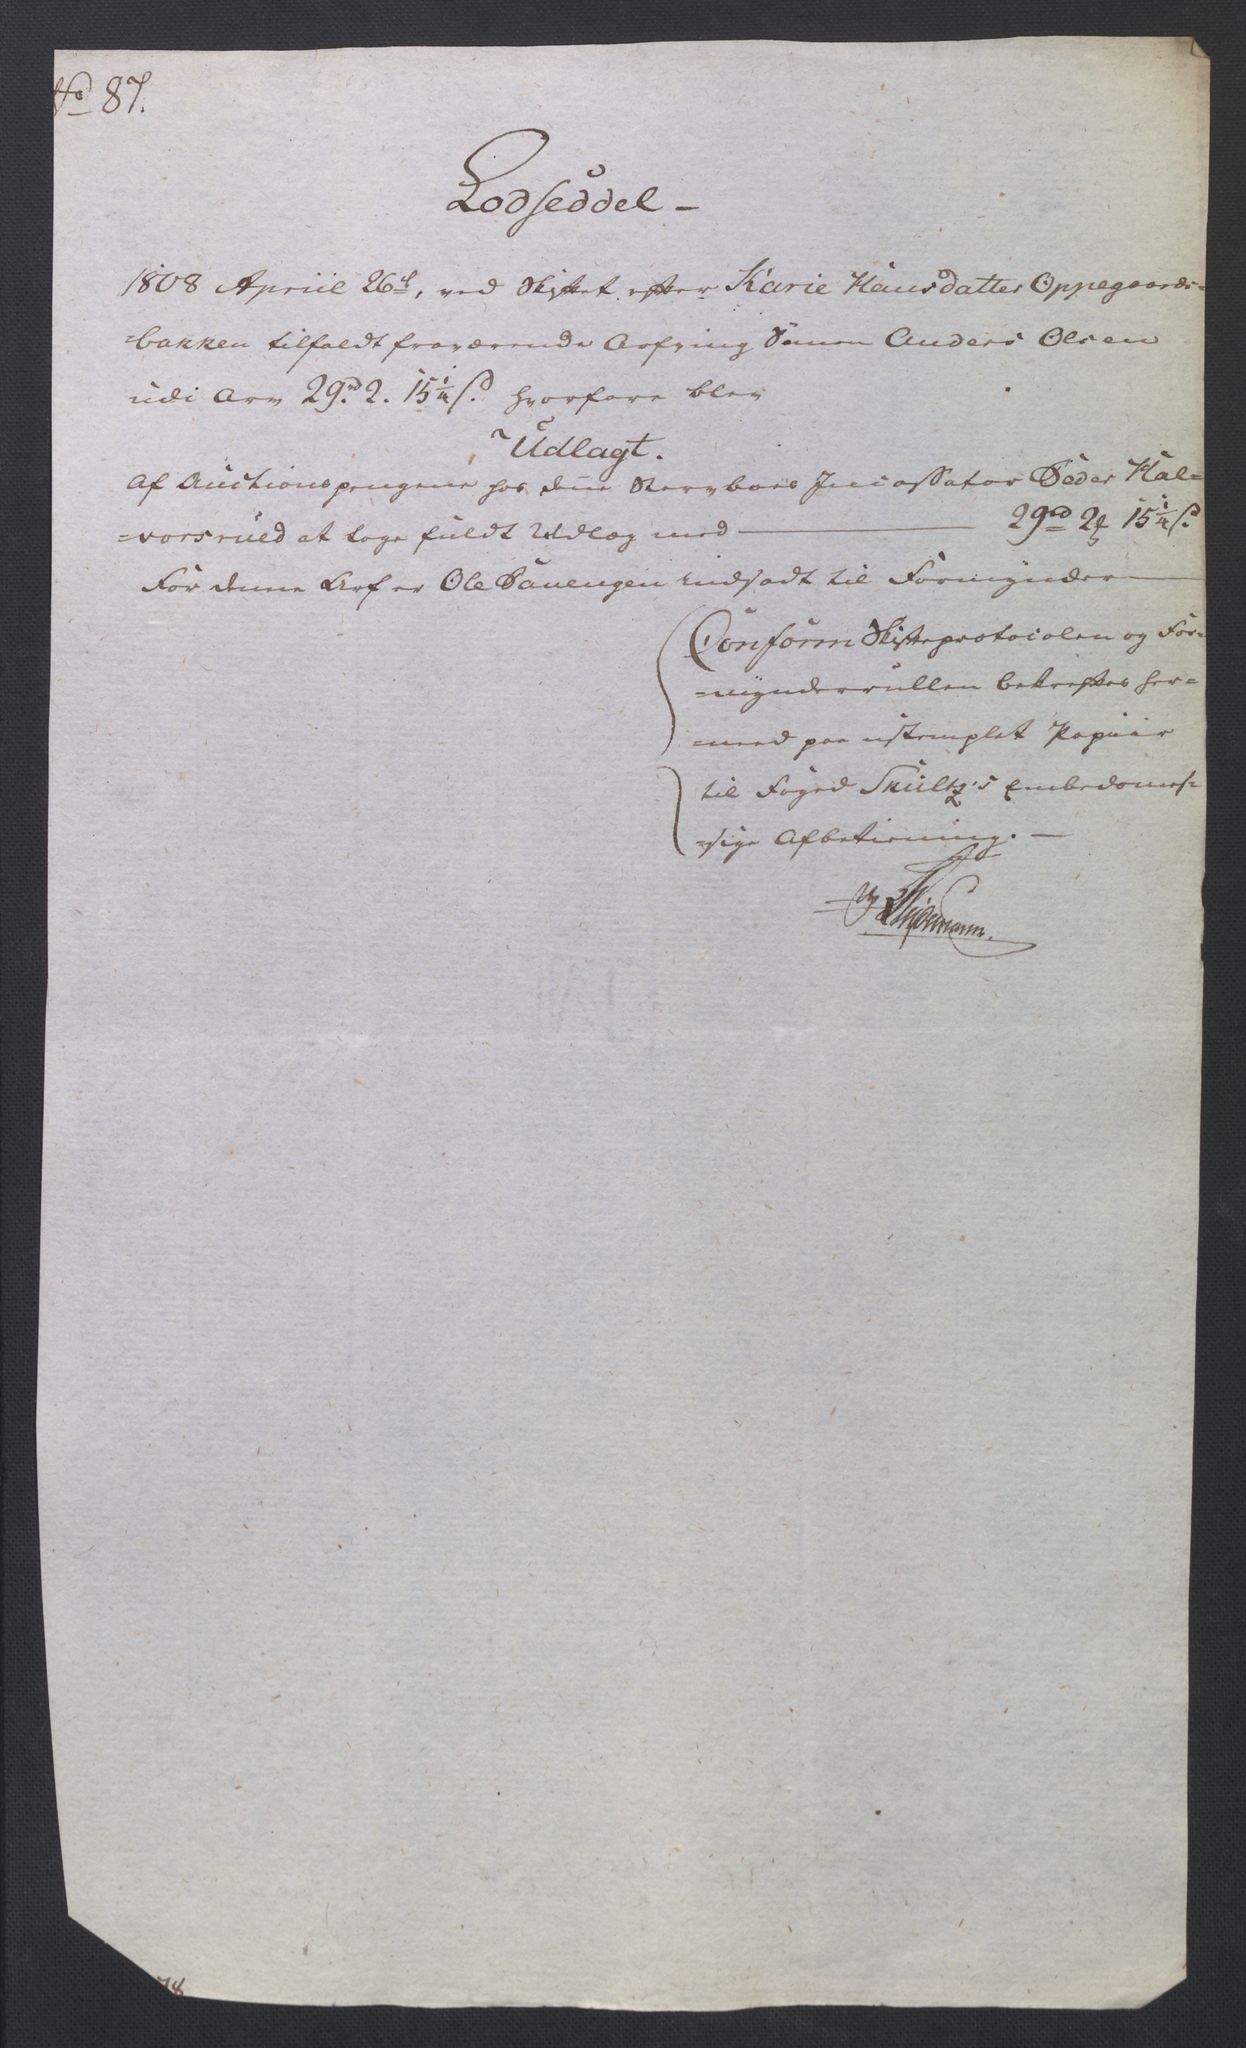 No 87.
Lodseddel -
1808 Apriil 26d, ved Skiftet efter Karie Hansdatter Oppegaards=
=bakken tilfaldt fraværende Arfving Sönen Anders Olsen
udi Arv 29rd. 2. 15¼ s. hvorfore blev
Udlagt.
Af Auctionspengene hos denne Stervboes Incassator Peder Hal=
=vorsrud at tage fuldt Udlæg med — 29rd 2 15¼ s.
For denne Arf er Ole indsadt til Formynder —
Conform Skifteprotocolen og For=
=mynderrullen bekreftes her=
=med paa ustemplet Papiir
til Foged Skultz's Embedsmes=
=sige Afbetiening. —